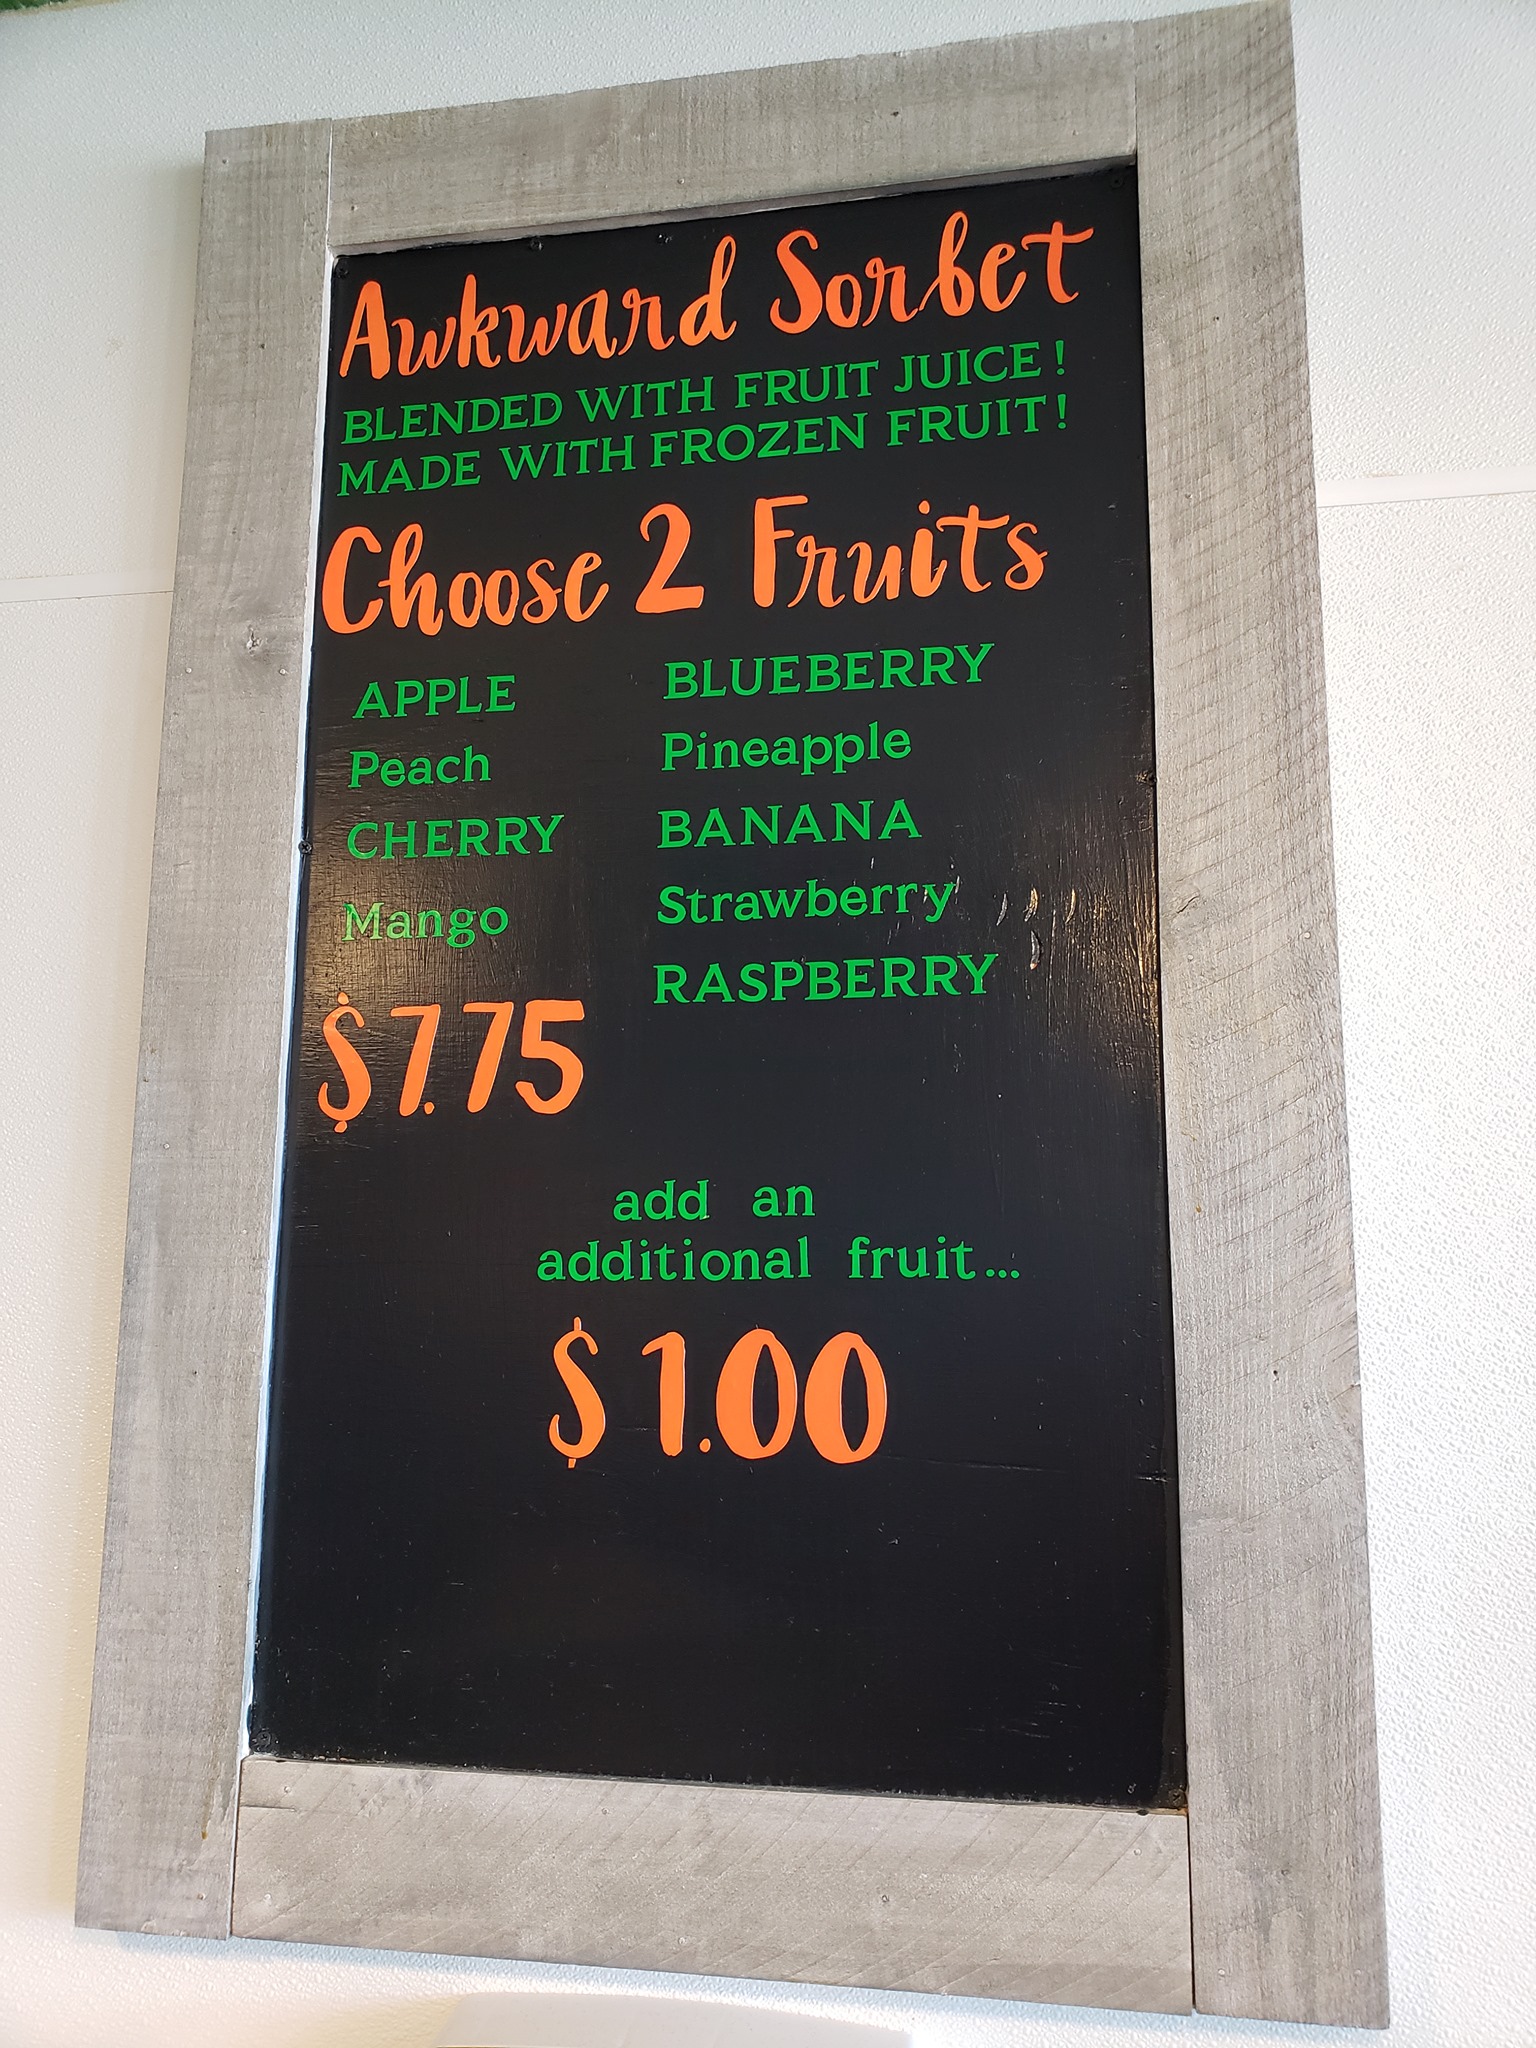 Awkward Sorbet
BLENDED WITH FRUIT JUICE!
MADE WITH FROZEN FRUIT!
Choose 2 Fruits
APPLE
Peach
CHERRY
Mango
$7.75
BLUEBERRY
Pineapple
BANANA
Strawberry
RASPBERRY
add an
additional fruit...
$1.00